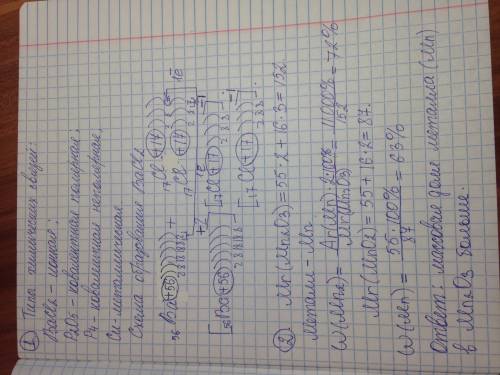 ① Типы химических связей:
BaCl2 - ионная;
P2O5 - ковалентная полярная;
P4 - ковалентная неполярная;
Cu - металлическая.
Схема образования BaCl2
56Ba(+56))))))) + 17Cl(+17))))
2 8 18 18 8 2
17Cl(+17)))) 1ē
2 8 7
[56Ba(+56)))))))]+2 [17Cl(+17))))]-1
2 8 18 18 8 2 8 8
[17Cl(+17))))]-1
2 8 8
② Mr(Mn2O3) = 55·2 + 16·3 = 152
Металл - Mn
W(Mn2) = Ar(Mn)·2·100% / Mr(Mn2O3) = 11000% / 152 = 72%
Mr(MnO2) = 55 + 16·2 = 87.
W(Mn) = 55·100% / 87 = 63%
Ответ: массовая доля металла (Mn)
в Mn2O3 больше.